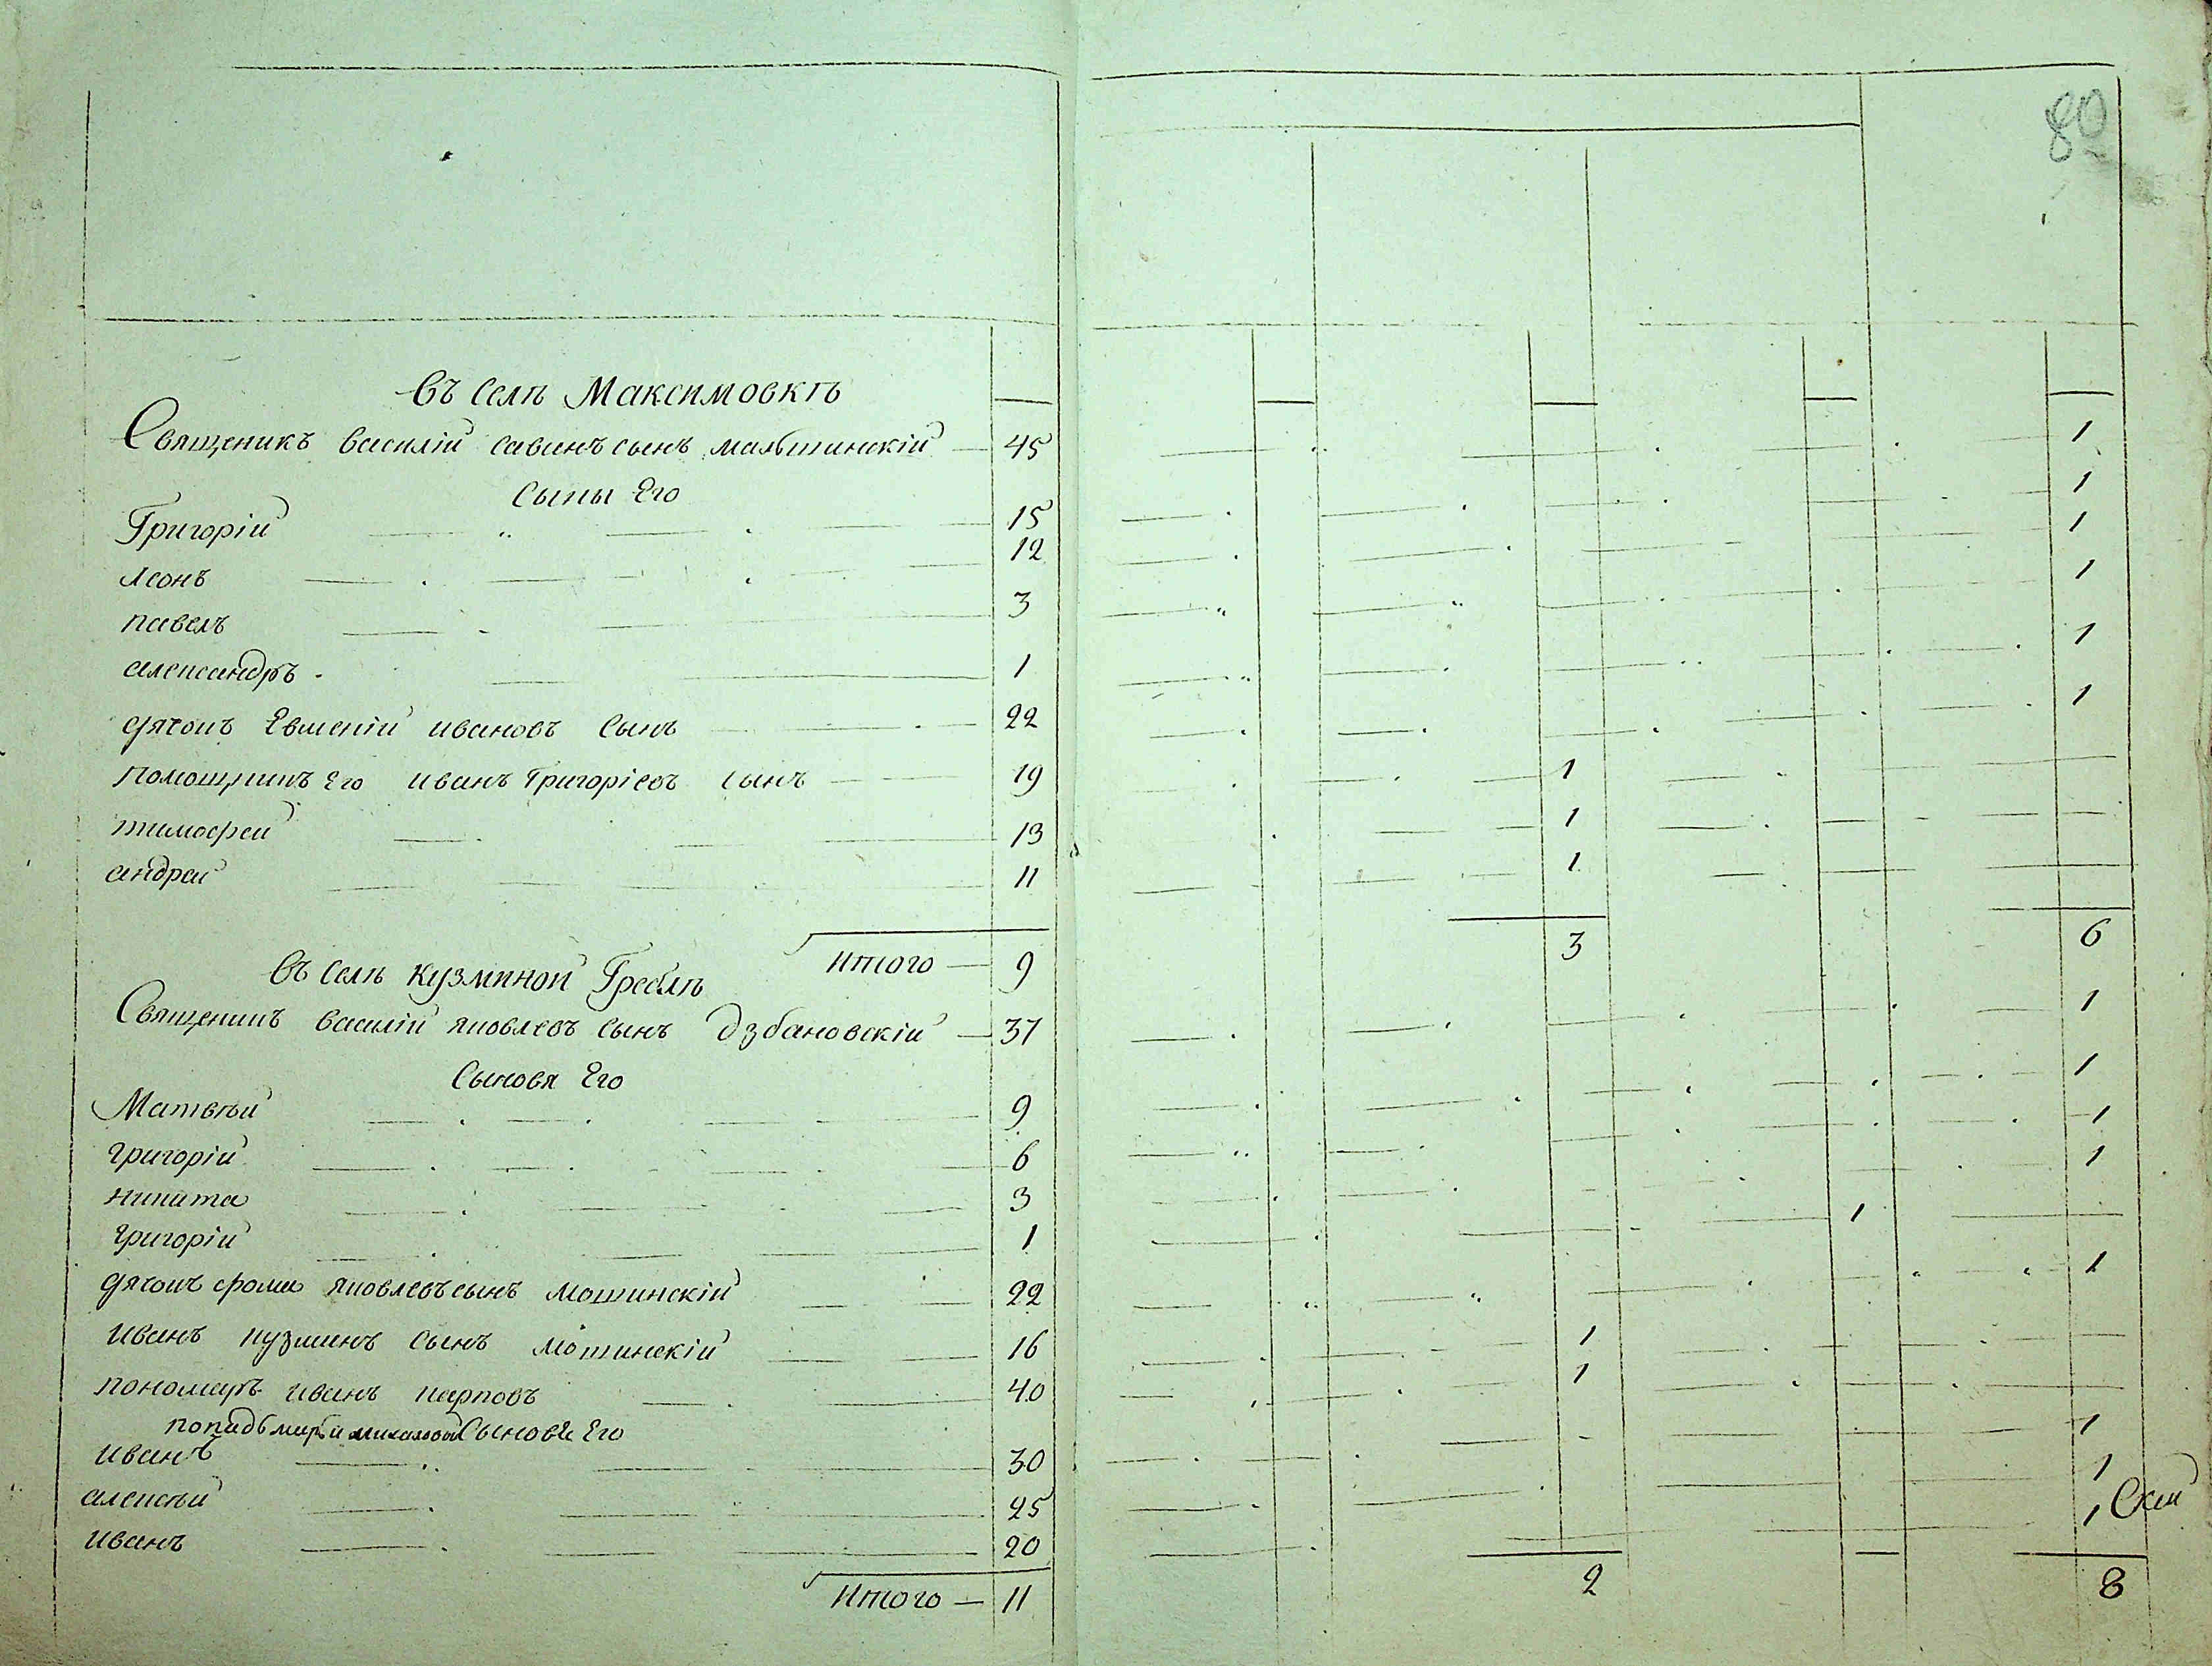 80
Въ селѣ Максимовкѣ
Священикъ василій савинъ сынъ 45 1
Сыны Его
Григорій 15 1
Леонъ 12 1
павелъ 3 1
александръ 1 1
дячокъ Евменій ивановъ Сынъ 22 1
помощникъ Его иванъ Григоріевъ сынъ 19 1
тимофей 13 1
андрей 11 1
Итого 9 3 6
Въ селѣ Кузминой Греблѣ
Священикъ василій яковлевъ сынъ Дзбановскій 37 1
Сыновя Его
Матвѣй 9 1
григорій 6 1
никита 3 1
григорій 1 1
дячокъ фома яковлевъ сынъ мошинскій 22 1
иванъ кузминъ сынъ мошинскій 16 1
пономаръ иванъ карповъ 40 1
Сыновя Его
иванъ 30 1
алексѣй 25 1
иванъ 20 1
Итого 11 2 8
Скій